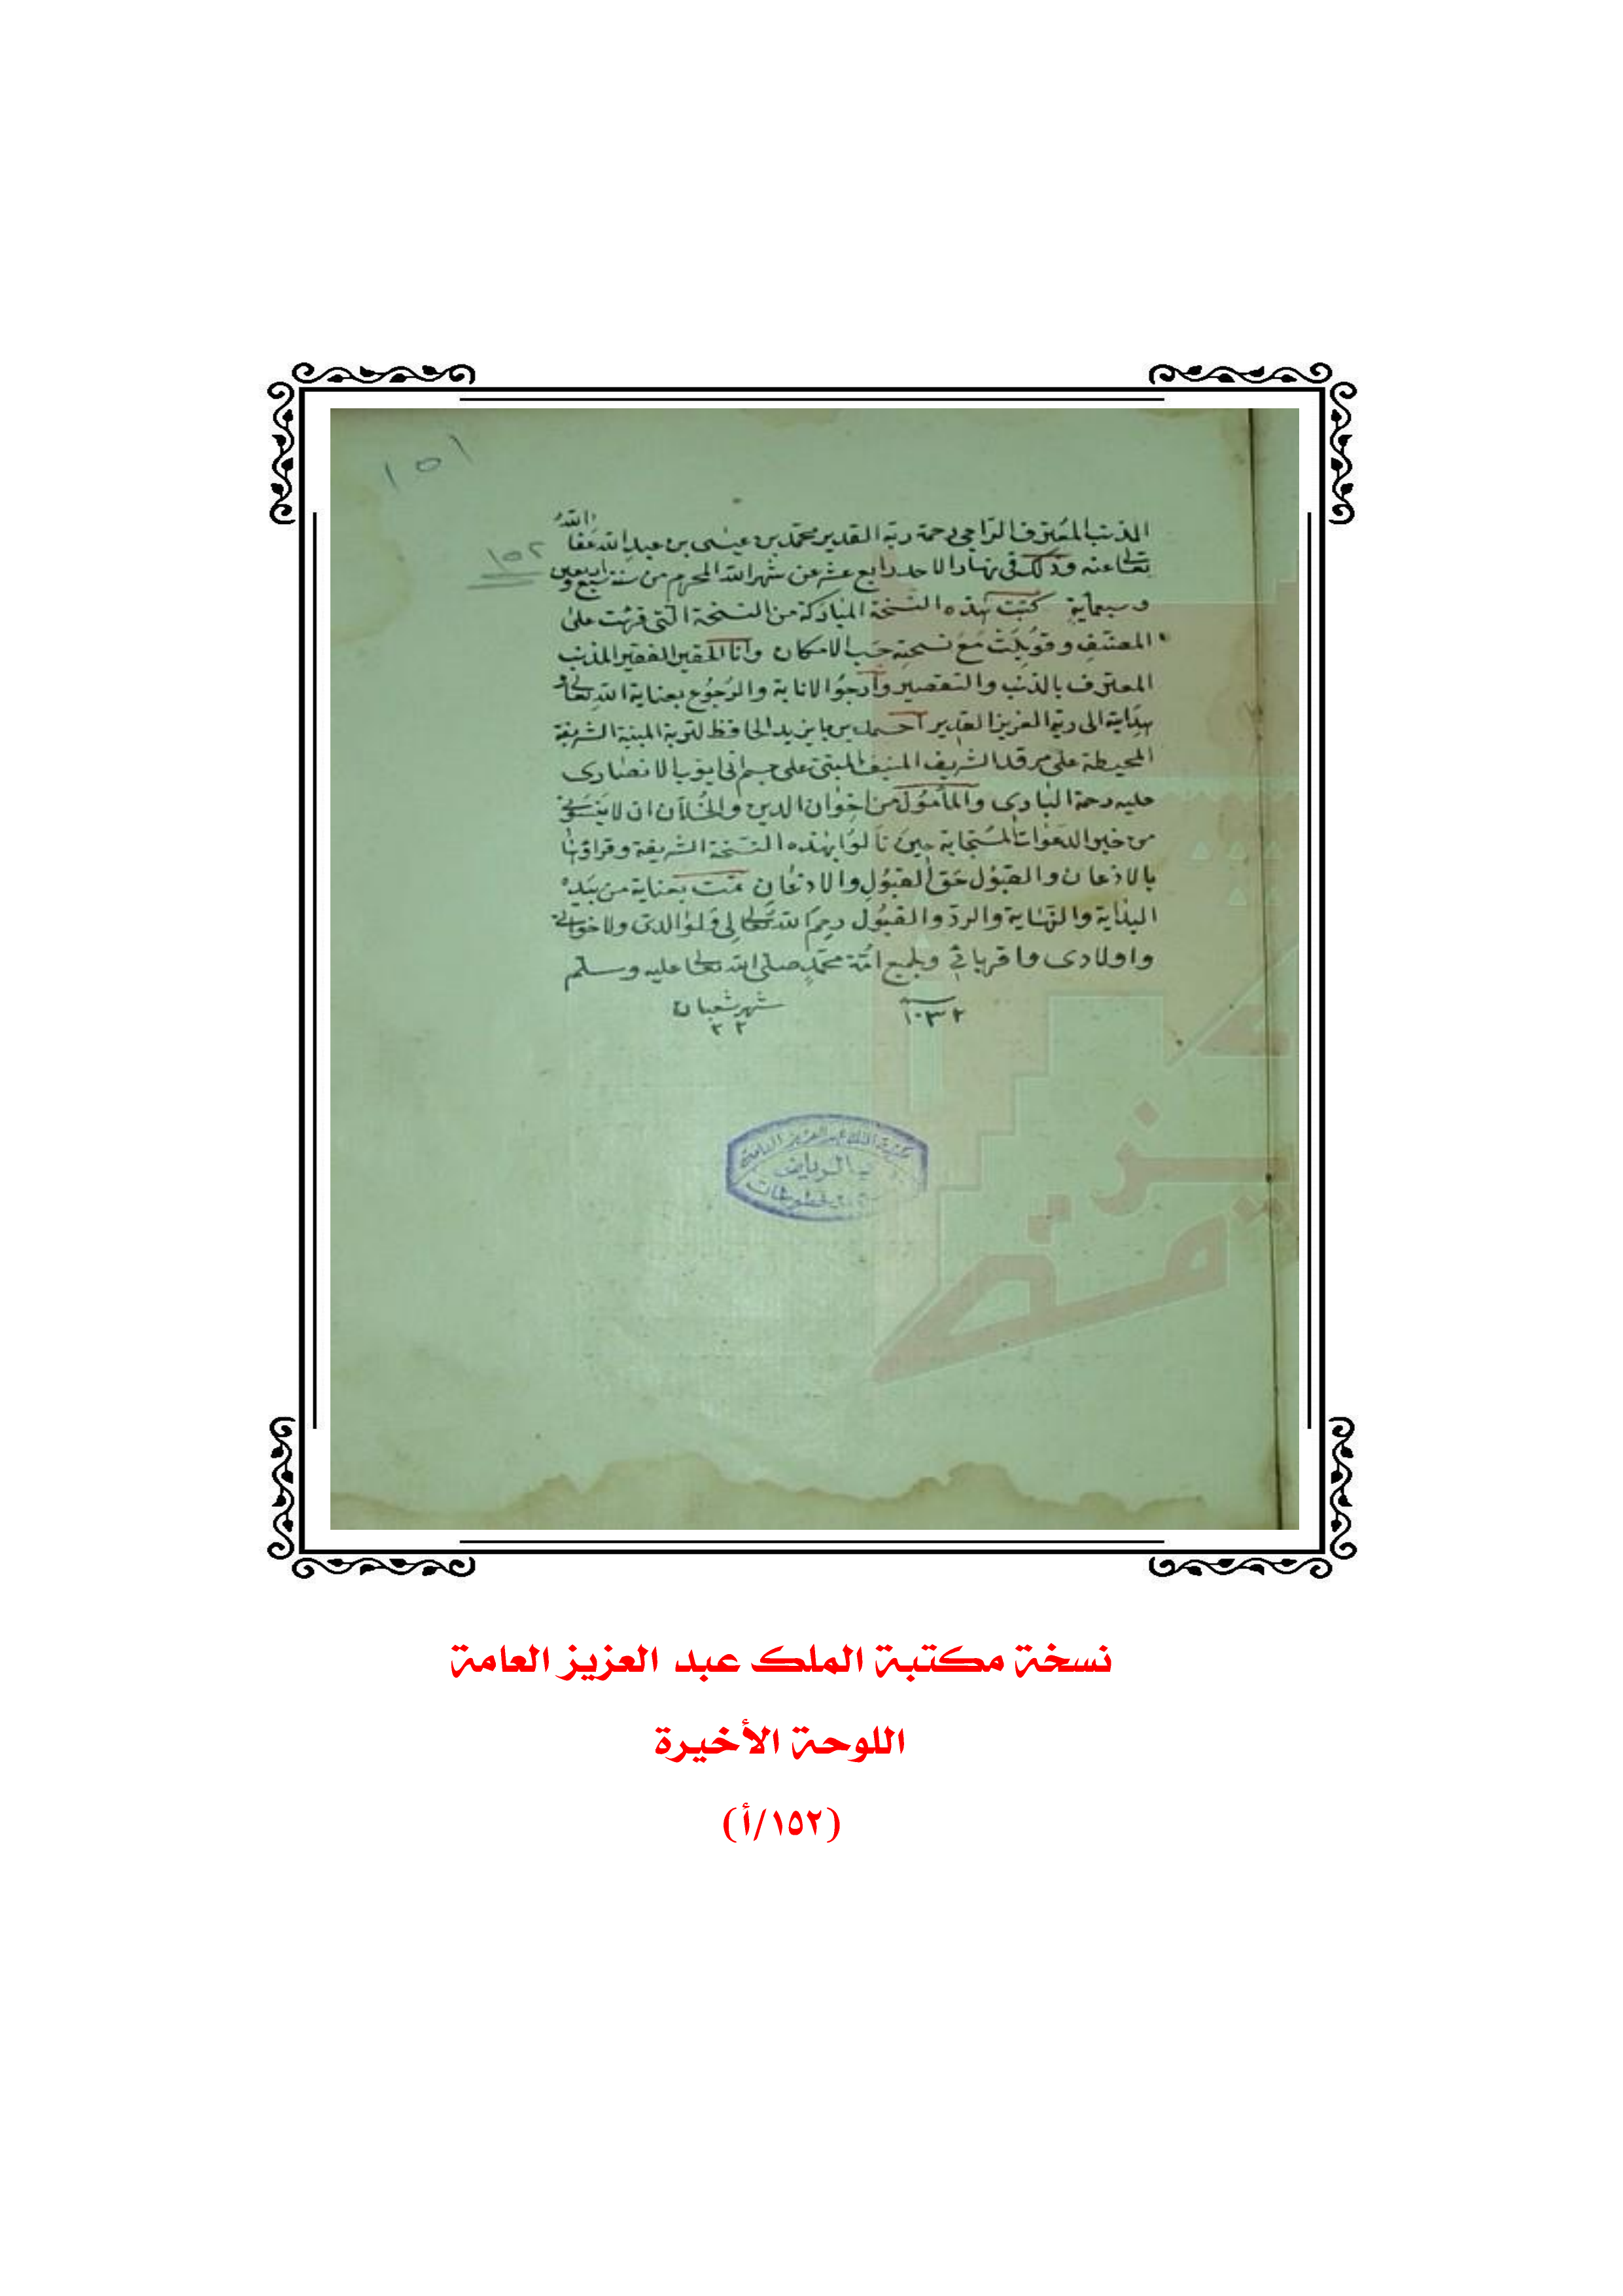 ١٥١
المذنب المعترف الراجي رحمة ربه القدير محمد بن عيسى بن عبد الله عفا الله
تعالى عنه وذلك في نهار الاحد رابع عشر من شهر الله المحرم من سنة سبع واربعين
١٥٢
وسبعماية كتبت هذه النسخة المباركة من النسخة التي قرئت على
المصنف وقوبلت مع نسخته حسب الامكان وانا الحقير الفقير المذنب
المعترف بالذنب والتقصير وارجو الانابة والرجوع بعناية الله تعالى و
هدايته الى ربه العزيز القدير احمد بن بايزيد الحافظ لتربة المبنية الشريفة
المحيطة على مرقد الشريف المنيف المبتنى على جسم ابي ايوب الانصارى
عليه رحمة البارى والمأمول من اخوان الدين والخلان ان لا ينسوني
من خير الدعوات المستجابة حين نالوا بهذه النسخة الشريفة وقراؤتها
بالاذعان والقبول حق القبول والاذعان تمت بعناية من بيده
البداية والنهاية والرد والقبول رحم الله تعالى لي ولوالدى ولاخواني
واولادى واقرباني ولجميع امة محمد صلى الله تعالى عليه وسلم
سنة ١٠٣٢ شهر شعبان ٢٢
مكتبة الملك عبد العزيز العامة
بالرياض
نسخة مكتبة الملك عبد العزيز العامة
اللوحة الأخيرة
(١٥٢/أ)